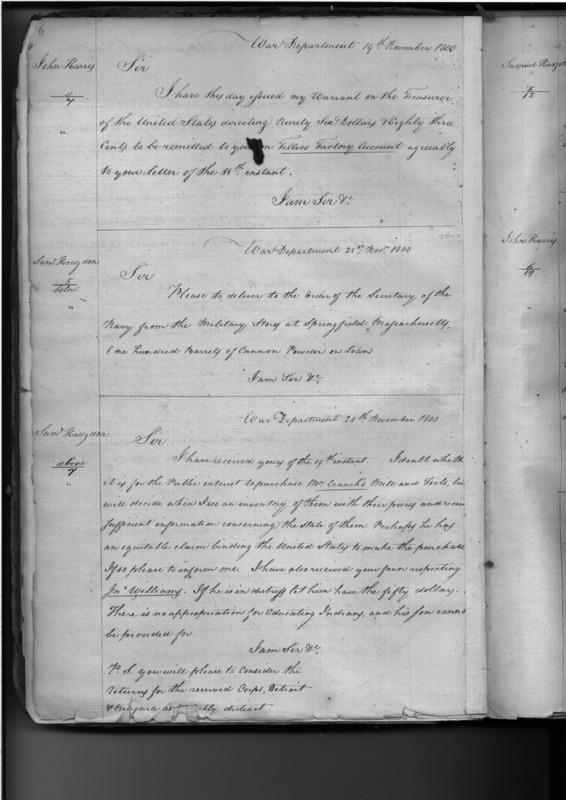 6
War Department 19th November 1800
John Harris
Sir
I have this day issued my Warrant on the Treasurer
of the United States directing Ninety Six Dollars & Eighty three
Cents to be remitted to you on Tellico Factory Account agreeably
to your Letter of the 11th instant.
I am Sir &c
War Department 21st Novr 1800
Saml Hodgdon
Sir
Please to deliver to the Order of the Secretary, of the
Navy from the Military Stores at Springfield Massachusetts,
One hundred Barrels of Cannon Powder on Loan
I am Sir &c
War Department 20th November 1800
Saml Hodgdon
above
7
Sir
I have received yours of the 19th instant. I doubt wheth
it is for the Public interest to purchase Mr Cranch's Mill and Tools, but
will decide when I see an inventory of them with their prices and receive
sufficient information concerning the state of them. Perhaps he has
an equitable claim binding the United States to make the purchase
If so please to inform me. I have also received your favor respecting
Jno Williams. If he is in distress let him have the fifty dollars.
There is no appropriation for Educating Indians, and his son cannot
be provided for.
I am Sir &c
P. S. you will please to consider the
returns for the reserved Corps, Detroit
& Niagara as distinct
Samuel Ho
12
John Harris
19